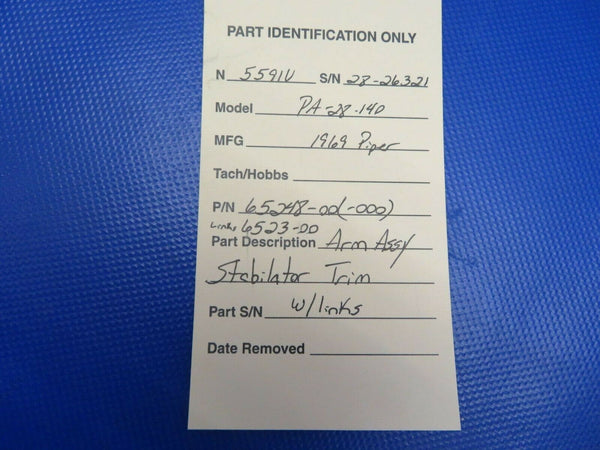 PART IDENTIFICATION ONLY
N 5591U S/N 28-26321
Model PA-28-140
MFG 1969 Piper
Tach/Hobbs
P/N 65248-00(-000)
Links 6523-00
Part Description Arm Assy
Stabilator Trim
Part S/N w/links
Date Removed